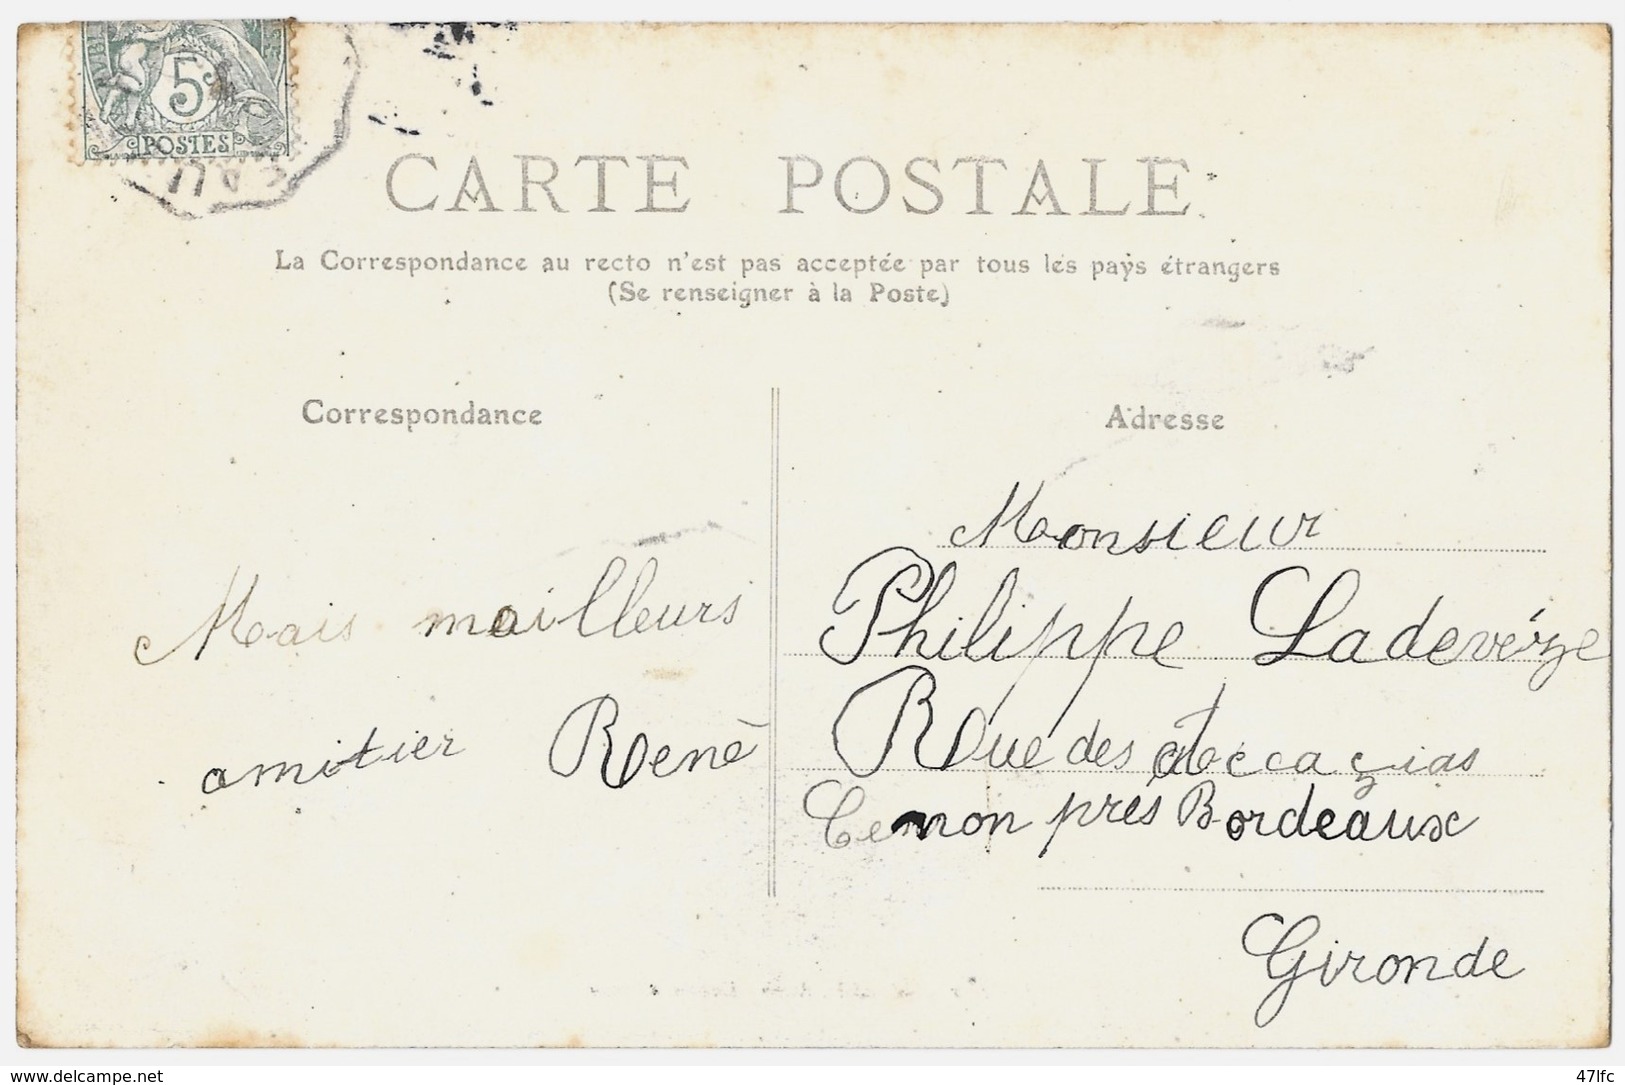 5c
POSTES
CARTE POSTALE
La Correspondance au recto n'est pas acceptée par tous les pays étrangers
(Se renseigner à la Poste)
Correspondance
Mais mailleurs
amitier René
Adresse
Monsieur
Philippe Ladevéze
Rue des
Cenon prés Bordeaux
Gironde
www.delcampe.net
47lfc